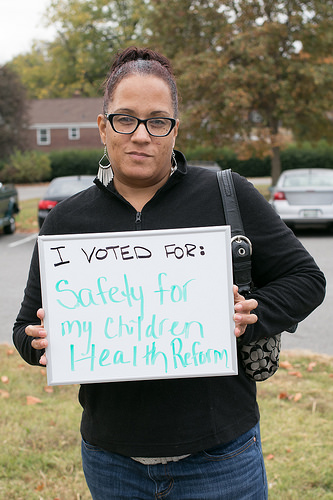 I VOTED FOR:
Safely for
my Children
Health Reform